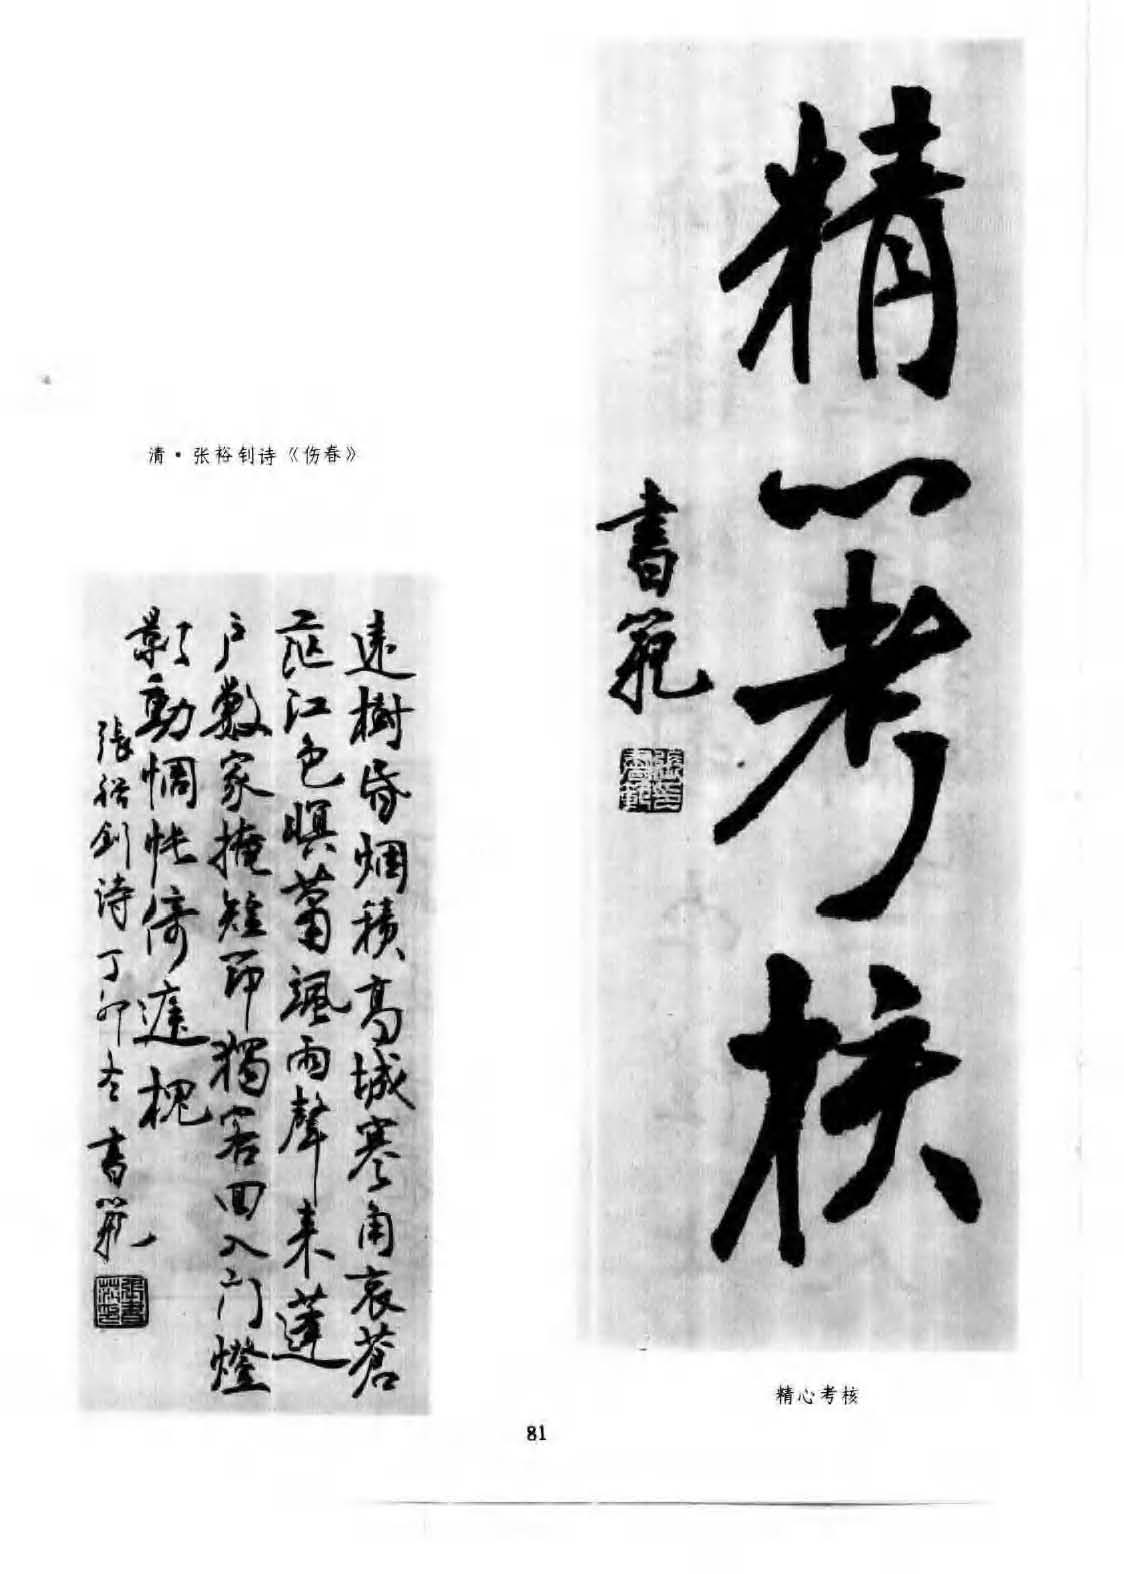 精心考核
書範
張印書範
精心考核
清·张裕钊诗《伤春》
遠樹昏烟積高城寒角哀蒼
茫江色暝蕭颯雨聲來蓬
户數家掩短筇獨客回入门燈
影動惆悵倚庭槐
張裕釗詩丁卯冬書範
張書範印
81